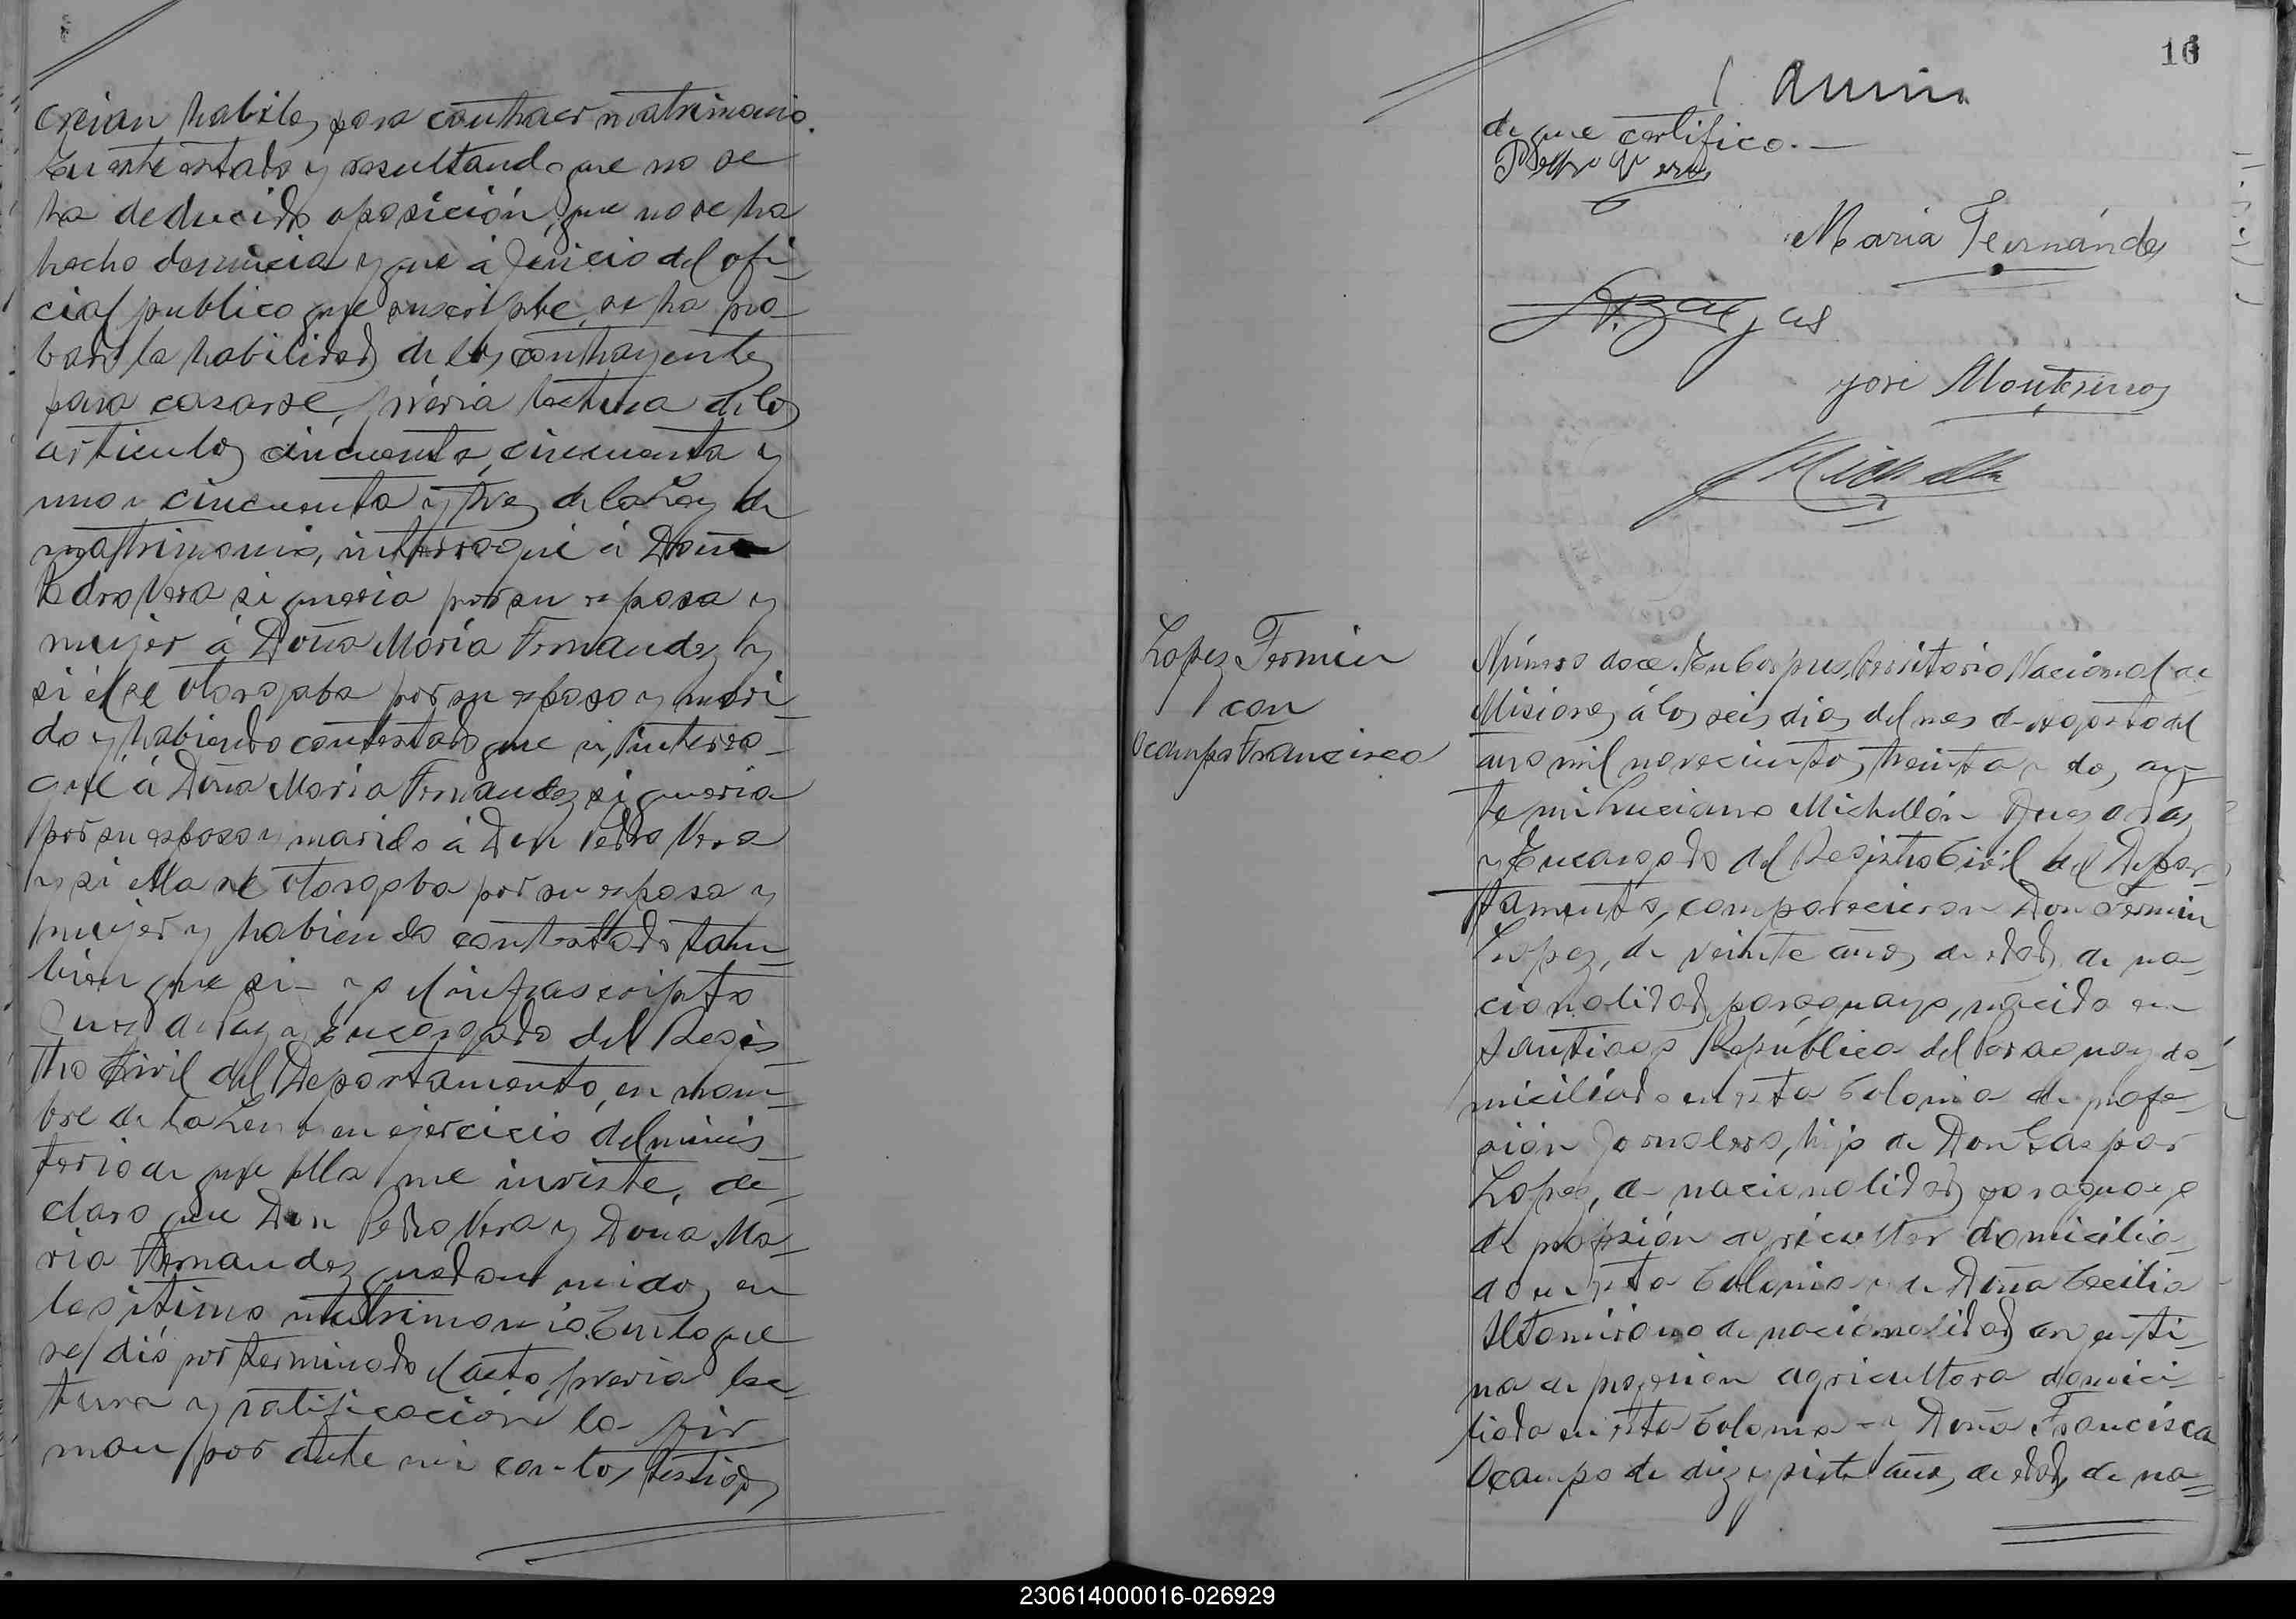 creian habiles para contraer matrimonio.
En este estado y resultando que no se
ha deducido oposición, que no se ha
hecho denuncia y que á juicio del ofi-
cial publico que suscribe, se ha pro-
bado la habilidad de los contrayentes
para casarse, prévia lectura de los
articulos cincuenta, cincuenta y
uno y cincuenta y tres de la Ley de
matrimonio, interrogué á Don
Pedro Vera si queria por su esposa y
mujer á Doña María Fernandez y
si él se otorgaba por su esposo y mari-
do y habiendo contestado que si, interro-
gué á Doña Maria Fernandez si queria
por su esposo y marido á Don Pedro Vera
y si ella se otorgaba por su esposa y
mujer y habiendo contestado tam-
bien que si - yo el infrascripto
Juez de Paz y Encargado del Regis-
tro Civil del Departamento, en nom-
bre de la Ley y en ejercicio del minis-
terio de que ella me inviste, de-
claro que Don Pedro Vera y Doña Ma-
ria Fernandez quedan unidos en
legitimo matrimonio. Con lo que
se dió por terminado el acto, previa lec-
tura y ratificación la fir-
man por ante mi con los testigos
16
de que certifico.-
Pedro Vera
María Fernándes
José Montesinos
Lopez Fermin
con
Ocampo Francisca
Número doce. En Corpus, Territorio Nacional de
Misiones á los seis dias del mes de Agosto del
año mil novecientos treinta y dos, an-
te mi Luciano Michellón Juez de Paz
y Encargado del Registro Civil del Depar-
tamento, comparecieron Don Fermin
Lopez, de veinte años de edad, de na-
cionalidad paraguaya, nacido en
Santiago República del Paraguay do-
miciliado en esta Colonia de profe-
sión Jornalero, hijo de Don Gaspar
Lopez, de nacionalidad paraguaya
de profesión agricultor domicilia-
do en esta Colonia y de Doña Cecilia
Altamirano de nacionalidad argenti-
na de profesion agricultora domici-
liada en esta Colonia - y Doña Francisca
Ocampo de diez y siete años de edad, de na-
230614000016-026929